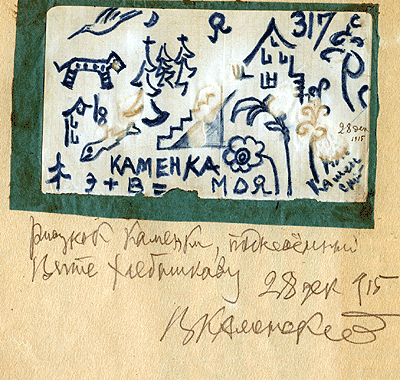 Я 317
28 дек
1915
КАМЕНКА
Э + В = МОЯ
рисунок Каменки, подаренный
Вите Хлебникову 28 дек 915
ВКаменский